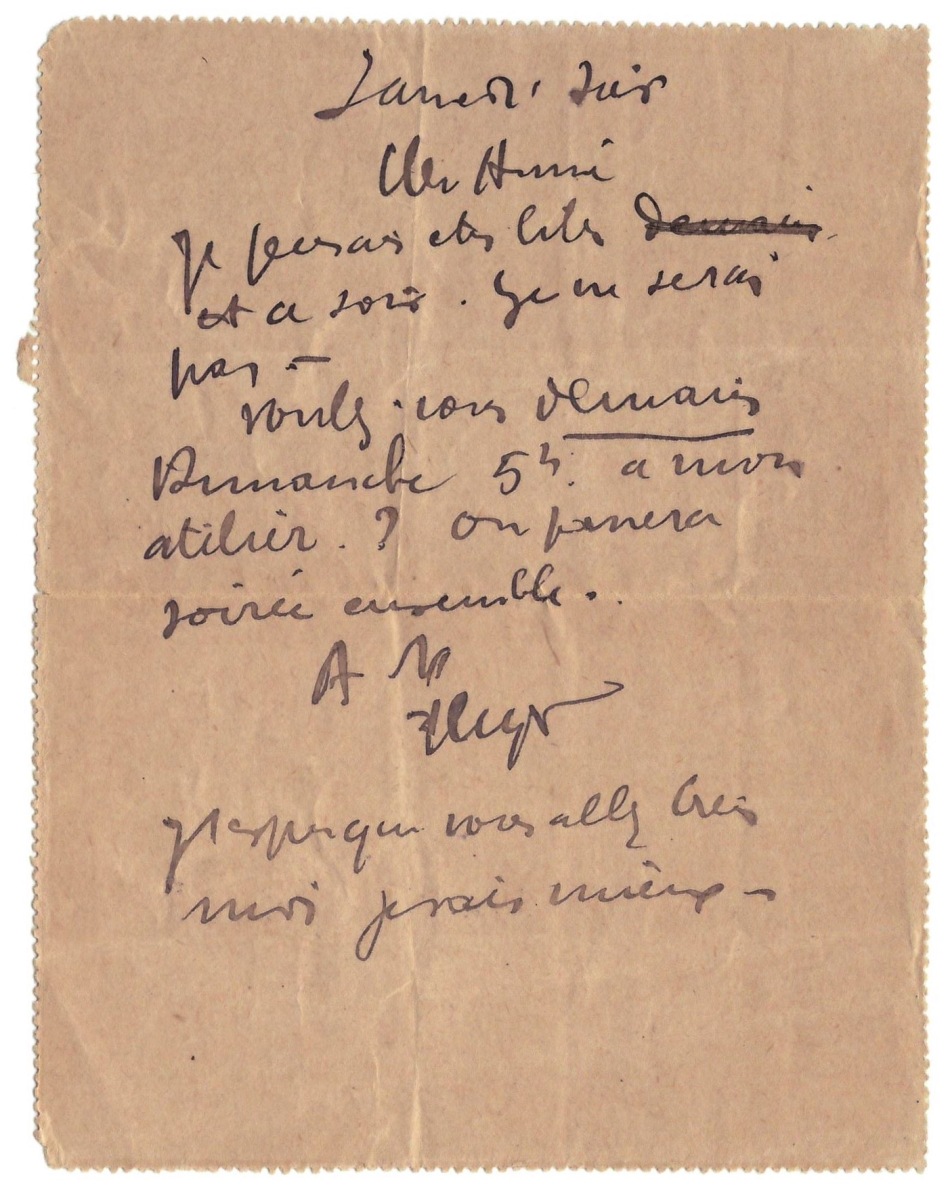 Samedi soir
Cher
je pensais etre libre ~~demain~~
et ce soir. Je ne serai
pas –
voulez-vous demain
Dimanche 5h. a mon
atelier. ? on passera
soirée ensemble.
A
j'espere que vous allez bien
moi je vais mieux –